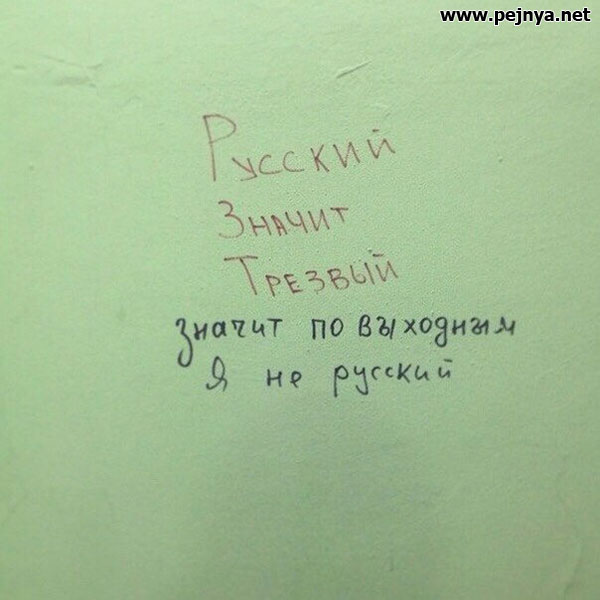 www.pejnya.net
Русский
Значит
Трезвый
значит по выходным
Я не русский